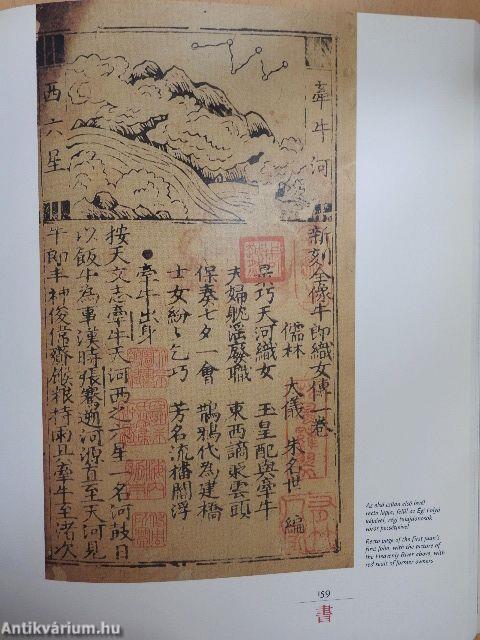 牽牛河
西六星
新刻全像牛郎織女傳一卷
儒林 大儀 朱名世 編
巧天河織女 玉皇配與牽牛
夫婦耽滛廢職 東西謫雲頭
保奏七夕一會 鵲鴉代為建橋
士女紛〻乞巧 芳名流播閻浮
牽牛出身
按天文志牽牛天河西之一星一名河鼓日
以飯牛為事漢時張騫遡河源直至天河見
牛郎丰神俊偉餱粮持雨具牽牛至渚次
Az első csüan első levél
recto lapja, felül az Égi Folyó
képével, régi tulajdonosok
vörös pecsétjeivel
Recto page of the first juan's
first folio, with the picture of
the Heavenly River above, with
red seals of former owners
159
書
Antikvárium.hu
Antikvárium.hu